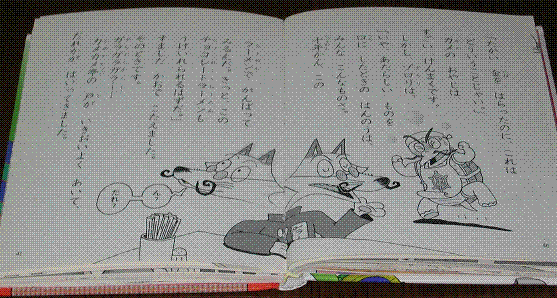 「たかい 金を はらったのに、これは
どういうことじゃい。」
カメの おやじは
すごい けんまくです。
しかし、ゾロリは、
「いや、あたらしい ものを
口に したときの はんのうは、
みんな こんなものさ。
十年かん この
ラーメンで がんばって
みるんだ。きっと この
チョコレートラーメンも
うけいれられるはずだ。」
すました かおで こたえました。
そのときです。
ガラガラガラ——
カメカメ亭の 戸が いきおいよく あいて、
だれかが はいってきました。